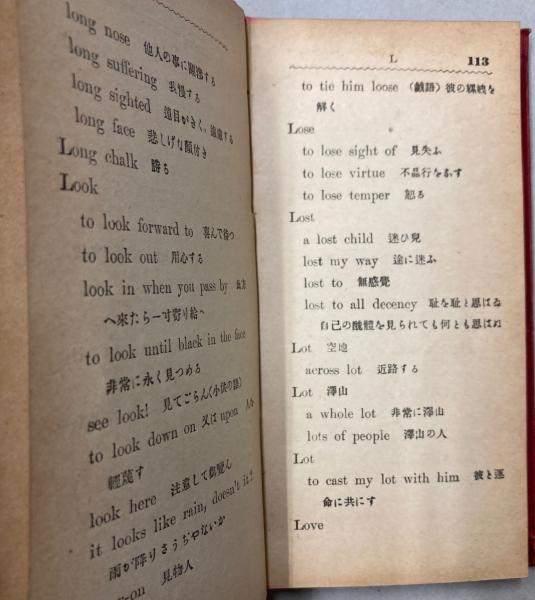 long nose 他人の事に關渉する
long suffering 我慢する
long sighted 遠目がきく、遠慮する
long face 悲しげな顔付き
Long chalk 勝る
Look
to look forward to 喜んで待つ
to look out 用心する
look in when you pass by 此方
へ來たら一寸寄り給へ
to look until black in the face
非常に永く見つめる
see look! 見てごらん(小供の語)
to look down on 又は upon 人を
輕蔑す
look here 注意して御覽ん
it looks like rain, doesn't it?
雨が降りさうぢやないか
-on 見物人
L 113
to tie him loose (戯語) 彼の縲絏を
解く
Lose
to lose sight of 見失ふ
to lose virtue 不品行を爲す
to lose temper 怒る
Lost
a lost child 迷ひ兒
lost my way 途に迷ふ
lost to 無感覺
lost to all decency 耻を耻と思はぬ
自己の醜體を見られても何とも思はぬ
Lot 空地
across lot 近路する
Lot 澤山
a whole lot 非常に澤山
lots of people 澤山の人
Lot
to cast my lot with him 彼と運
命に共にす
Love